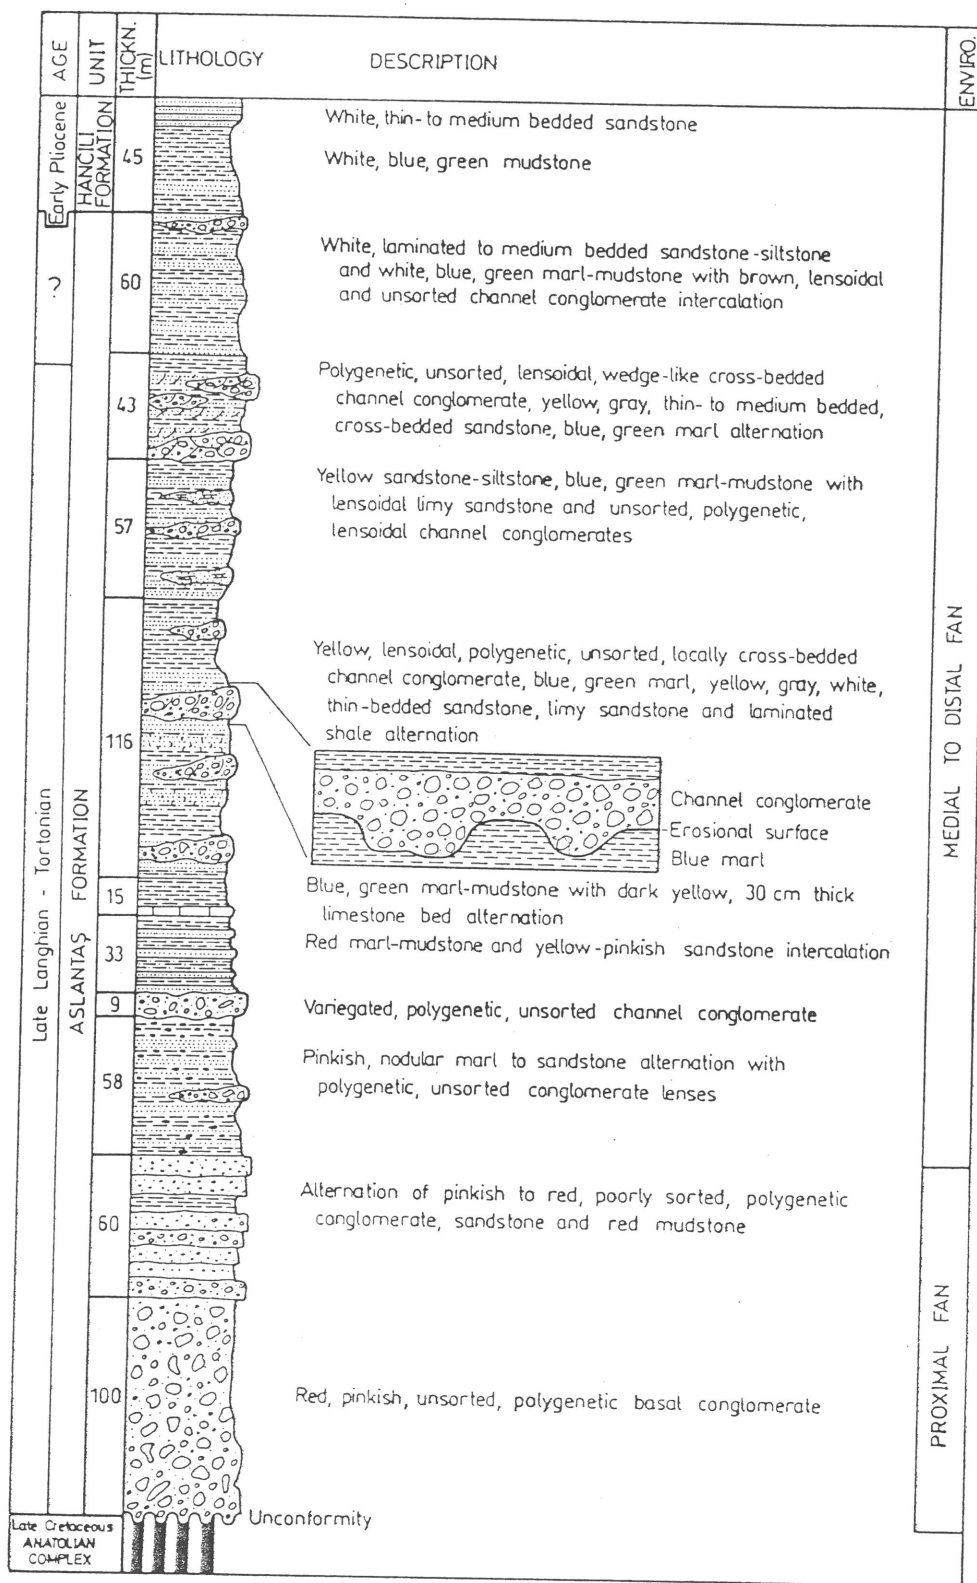 AGE
UNIT
THICKN.
(m)
LITHOLOGY
DESCRIPTION
ENVIRO.
Early Pliocene
HANCILI
FORMATION
45
White, thin- to medium bedded sandstone
White, blue, green mudstone
?
60
White, laminated to medium bedded sandstone-siltstone
and white, blue, green marl-mudstone with brown, lensoidal
and unsorted channel conglomerate intercalation
43
Polygenetic, unsorted, lensoidal, wedge-like cross-bedded
channel conglomerate, yellow, gray, thin- to medium bedded,
cross-bedded sandstone, blue, green marl alternation
57
Yellow sandstone-siltstone, blue, green marl-mudstone with
lensoidal limy sandstone and unsorted, polygenetic,
lensoidal channel conglomerates
Late Langhian - Tortonian
ASLANTAŞ FORMATION
MEDIAL TO DISTAL FAN
116
Yellow, lensoidal, polygenetic, unsorted, locally cross-bedded
channel conglomerate, blue, green marl, yellow, gray, white,
thin-bedded sandstone, limy sandstone and laminated
shale alternation
Channel conglomerate
Erosional surface
Blue marl
15
Blue, green marl-mudstone with dark yellow, 30 cm thick
limestone bed alternation
33
Red marl-mudstone and yellow-pinkish sandstone intercalation
9
Variegated, polygenetic, unsorted channel conglomerate
58
Pinkish, nodular marl to sandstone alternation with
polygenetic, unsorted conglomerate lenses
60
Alternation of pinkish to red, poorly sorted, polygenetic
conglomerate, sandstone and red mudstone
PROXIMAL FAN
100
Red, pinkish, unsorted, polygenetic basal conglomerate
Unconformity
Late Cretaceous
ANATOLIAN
COMPLEX